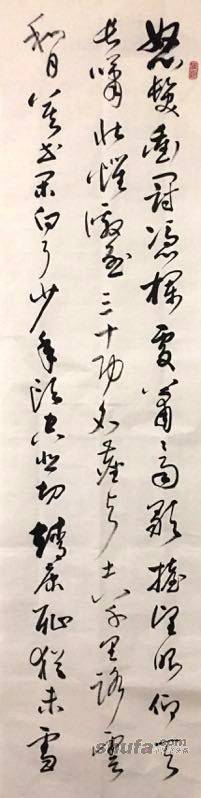 怒髮衝冠憑欄處瀟瀟雨歇抬望眼仰天
長嘯壯懷激烈三十功名塵與土八千里路雲
和月莫等閒白了少年頭空悲切靖康恥猶未雪
shufa.com